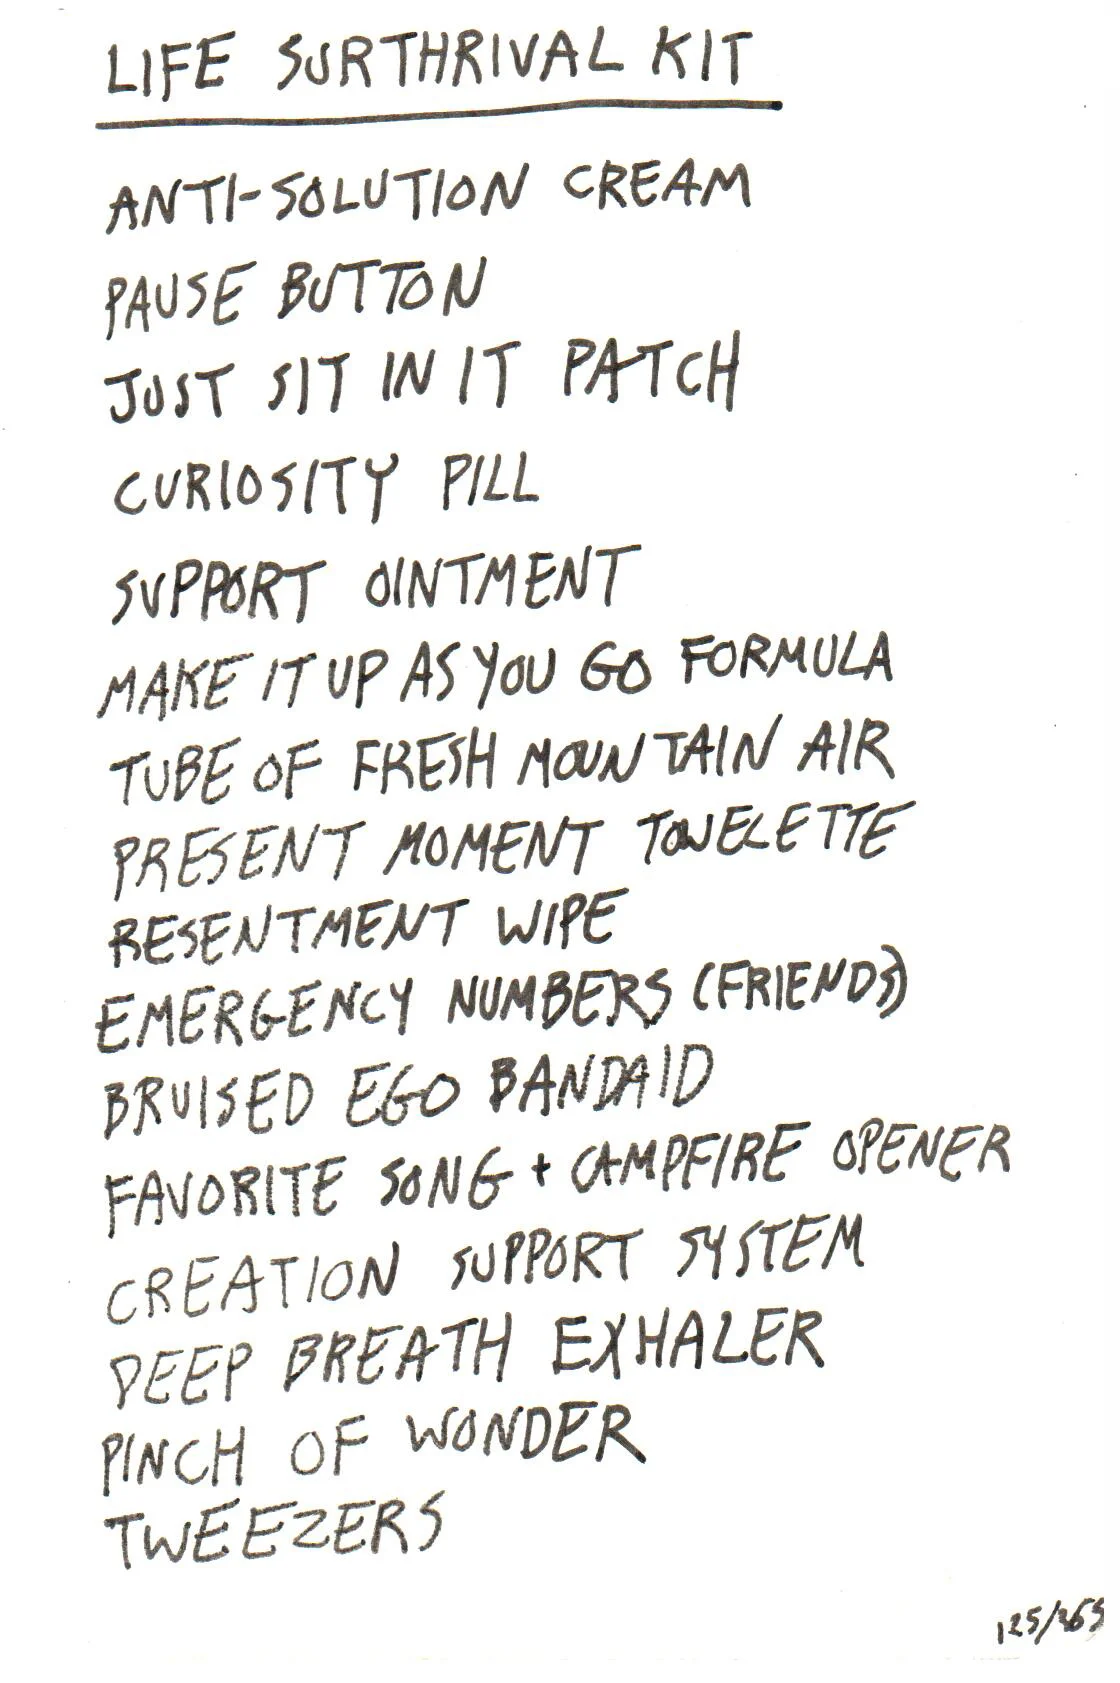 LIFE SURTHRIVAL KIT
ANTI-SOLUTION CREAM
PAUSE BUTTON
JUST SIT IN IT PATCH
CURIOSITY PILL
SUPPORT OINTMENT
MAKE IT UP AS YOU GO FORMULA
TUBE OF FRESH MOUNTAIN AIR
PRESENT MOMENT TOWELETTE
RESENTMENT WIPE
EMERGENCY NUMBERS (FRIENDS)
BRUISED EGO BANDAID
FAVORITE SONG + CAMPFIRE OPENER
CREATION SUPPORT SYSTEM
DEEP BREATH EXHALER
PINCH OF WONDER
TWEEZERS
125/365